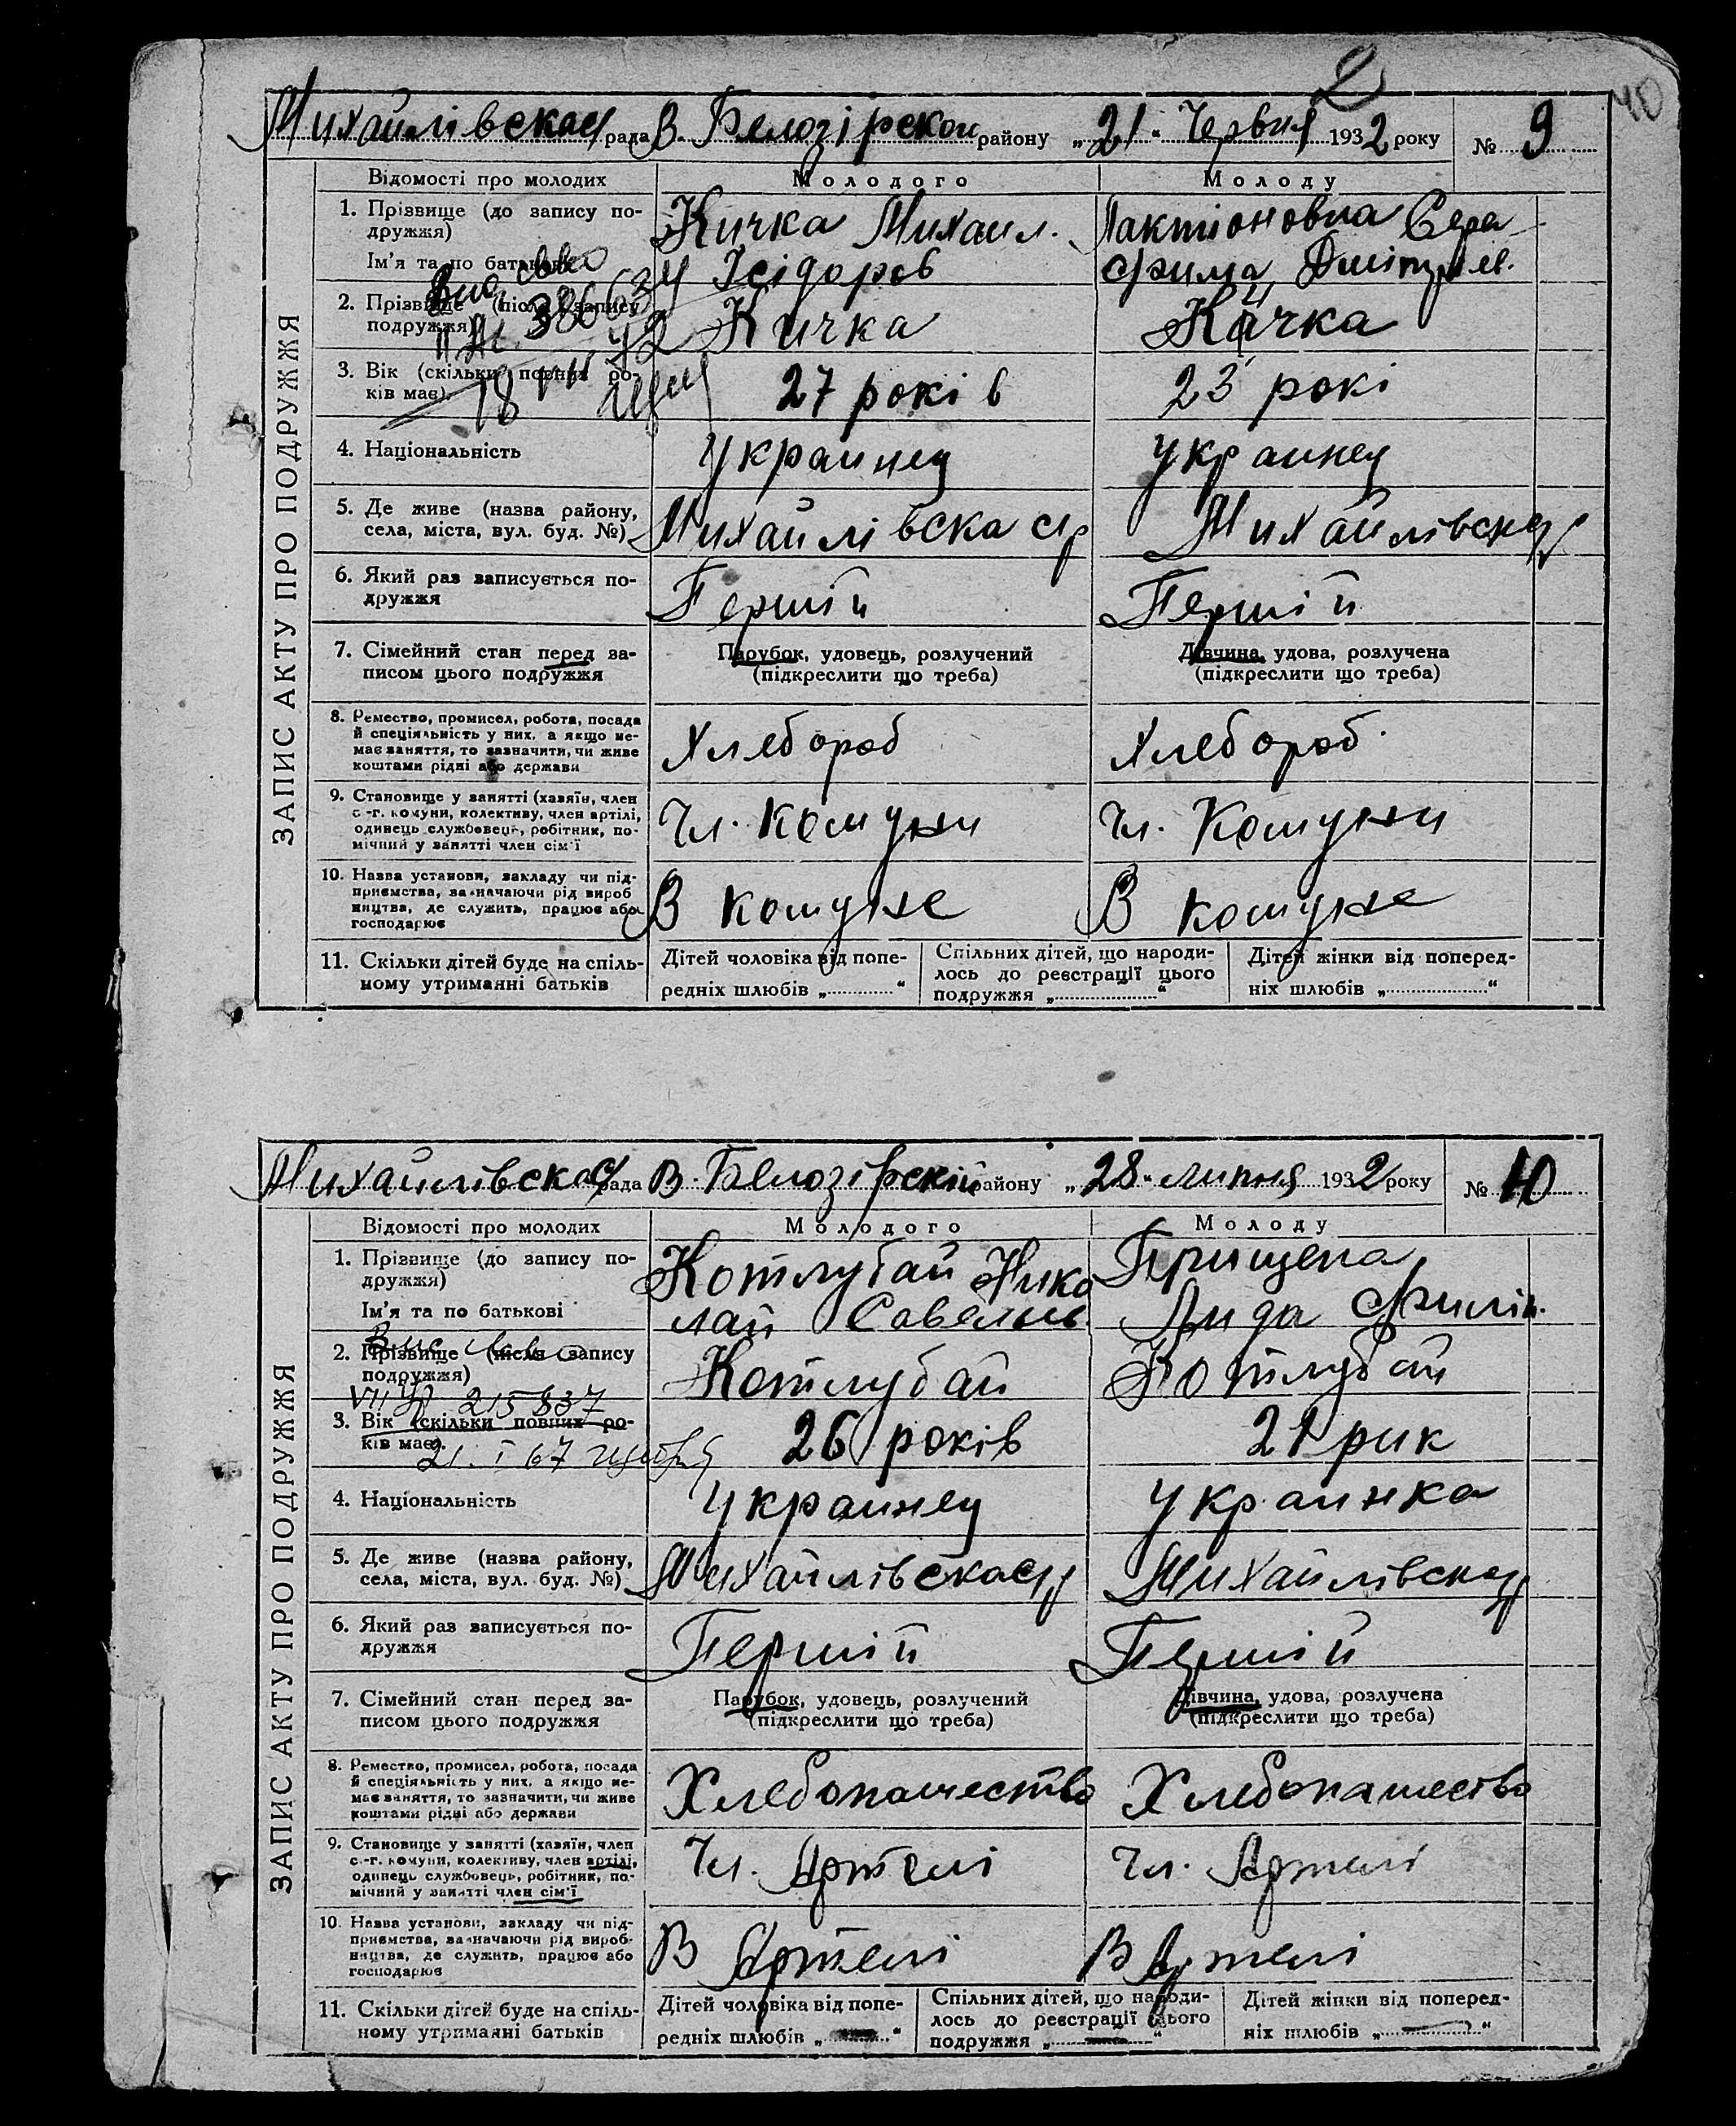 2
40
Михайлівска с/рада В. Белозірскои району „21“ Червня 1932 року № 9
ЗАПИС АКТУ ПРО ПОДРУЖЖЯ
Відомості про молодих Молодого Молоду
1. Прізвище (до запису по- Кичка Михаил. Лактіоновна Сера
дружжя)
Ім'я та по батькові Ісідоров фима Дмітрів.
2. Прізвище (після запису Кичка Кичка
подружжя)
3. Вік (скільки повних ро- 27 років 23 рокі
ків має).
18 VII 42
4. Національність Украинец Украинец
5. Де живе (назва району,
села, міста, вул. буд. №) Михайлівска с/р Михайлівска с/р
6. Який раз записується по- Першій Першій
дружжя
7. Сімейний стан перед за- Парубок, удовець, розлучений Дівчина, удова, розлучена
писом цього подружжя (підкреслити що треба) (підкреслити що треба)
8. Ремество, промисел, робота, посада
й спеціяльність у них, а якщо не- Хлебороб Хлебороб
має заняття, то зазначити, чи живе
коштами рідні або держави
9. Становище у занятті (хазяїн, член
с.-г. комуни, колективу, член артілі, Чл. Комуни Чл. Комуни
одинець службовець, робітник, по-
мічний у занятті член сім'ї
10. Назва установи, закладу чи під-
приємства, зазначаючи рід вироб В комуне В комуне
ництва, де служить, працює або
господарює
11. Скільки дітей буде на спіль- Дітей чоловіка від попе- Спільних дітей, що народи- Дітей жінки від поперед-
ному утриманні батьків редніх шлюбів „......“ лось до реєстрації цього ніх шлюбів „......“
подружжя „......“
Михайлівска с/рада В. Белозірскій району „28“ липня 1932 року № 10
ЗАПИС АКТУ ПРО ПОДРУЖЖЯ
Відомості про молодих Молодого Молоду
1. Прізвище (до запису по- Котлубай Нико Прищепа
дружжя)
Ім'я та по батькові лай Савельів. Лида Филіп.
2. Прізвище (після запису Котлубай Котлубай
подружжя)
215837
3. Вік (скільки повних ро- 26 років 21 рик
ків має).
21. I 67
4. Національність Украинец Украинка
5. Де живе (назва району,
села, міста, вул. буд. №) Михайлівска с/р Михайлівска с/р
6. Який раз записується по- Першій Першій
дружжя
7. Сімейний стан перед за- Парубок, удовець, розлучений Дівчина, удова, розлучена
писом цього подружжя (підкреслити що треба) (підкреслити що треба)
8. Ремество, промисел, робота, посада
й спеціяльність у них, а якщо не- Хлебопашество Хлебопашество
має заняття, то зазначити, чи живе
коштами рідні або держави
9. Становище у занятті (хазяїн, член
с.-г. комуни, колективу, член артілі, Чл. Артелі Чл. Артелі
одинець службовець, робітник, по-
мічний у занятті член сім'ї
10. Назва установи, закладу чи під-
приємства, зазначаючи рід вироб- В Артелі В Артелі
ництва, де служить, працює або
господарює
11. Скільки дітей буде на спіль- Дітей чоловіка від попе- Спільних дітей, що народи- Дітей жінки від поперед-
ному утриманні батьків редніх шлюбів „—“ лось до реєстрації цього ніх шлюбів „—“
подружжя „—“